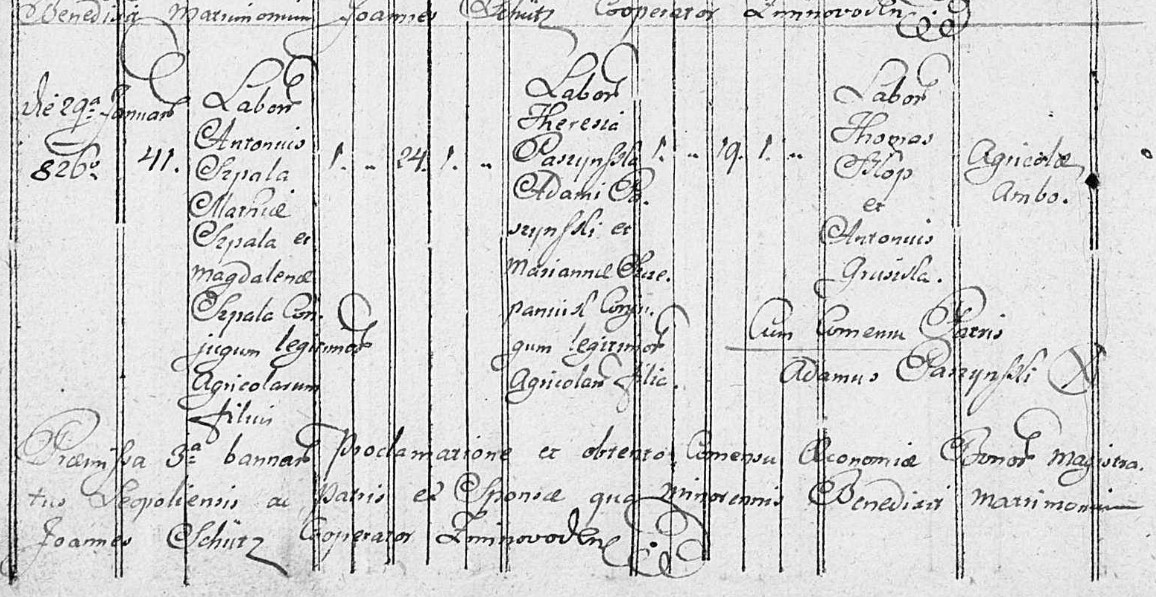 Benedixit Matrimonium Joannes Schütz Cooperator Zimnovoden
die 29a Januar
826o 41.
Labor
Antonius
Szpala
Mathiæ
Szpala et
Magdalenæ
Szpala Con-
jugum legitimor
Agricolarum
filius
1. „ 24. 1. „
Labor
Theresia
Paszynska
Adami Pa-
szynski et
Mariannæ
Conju-
gum legitimor
Agricolar filia.
1. „ 19. 1. „
Labor
Thomas
Klop
et
Antonius
Agricolæ
Ambo.
Cum Consensu Patris
Adamus Paszynski X
Præmissa 3a bannor Proclamatione et obtento Consensu Œconomiæ Bonor Magistra-
tus Leopoliensis ac Patris et Sponsæ qua minorennis Benedixit Matrimonium
Joannes Schütz Cooperator Zimnovoden